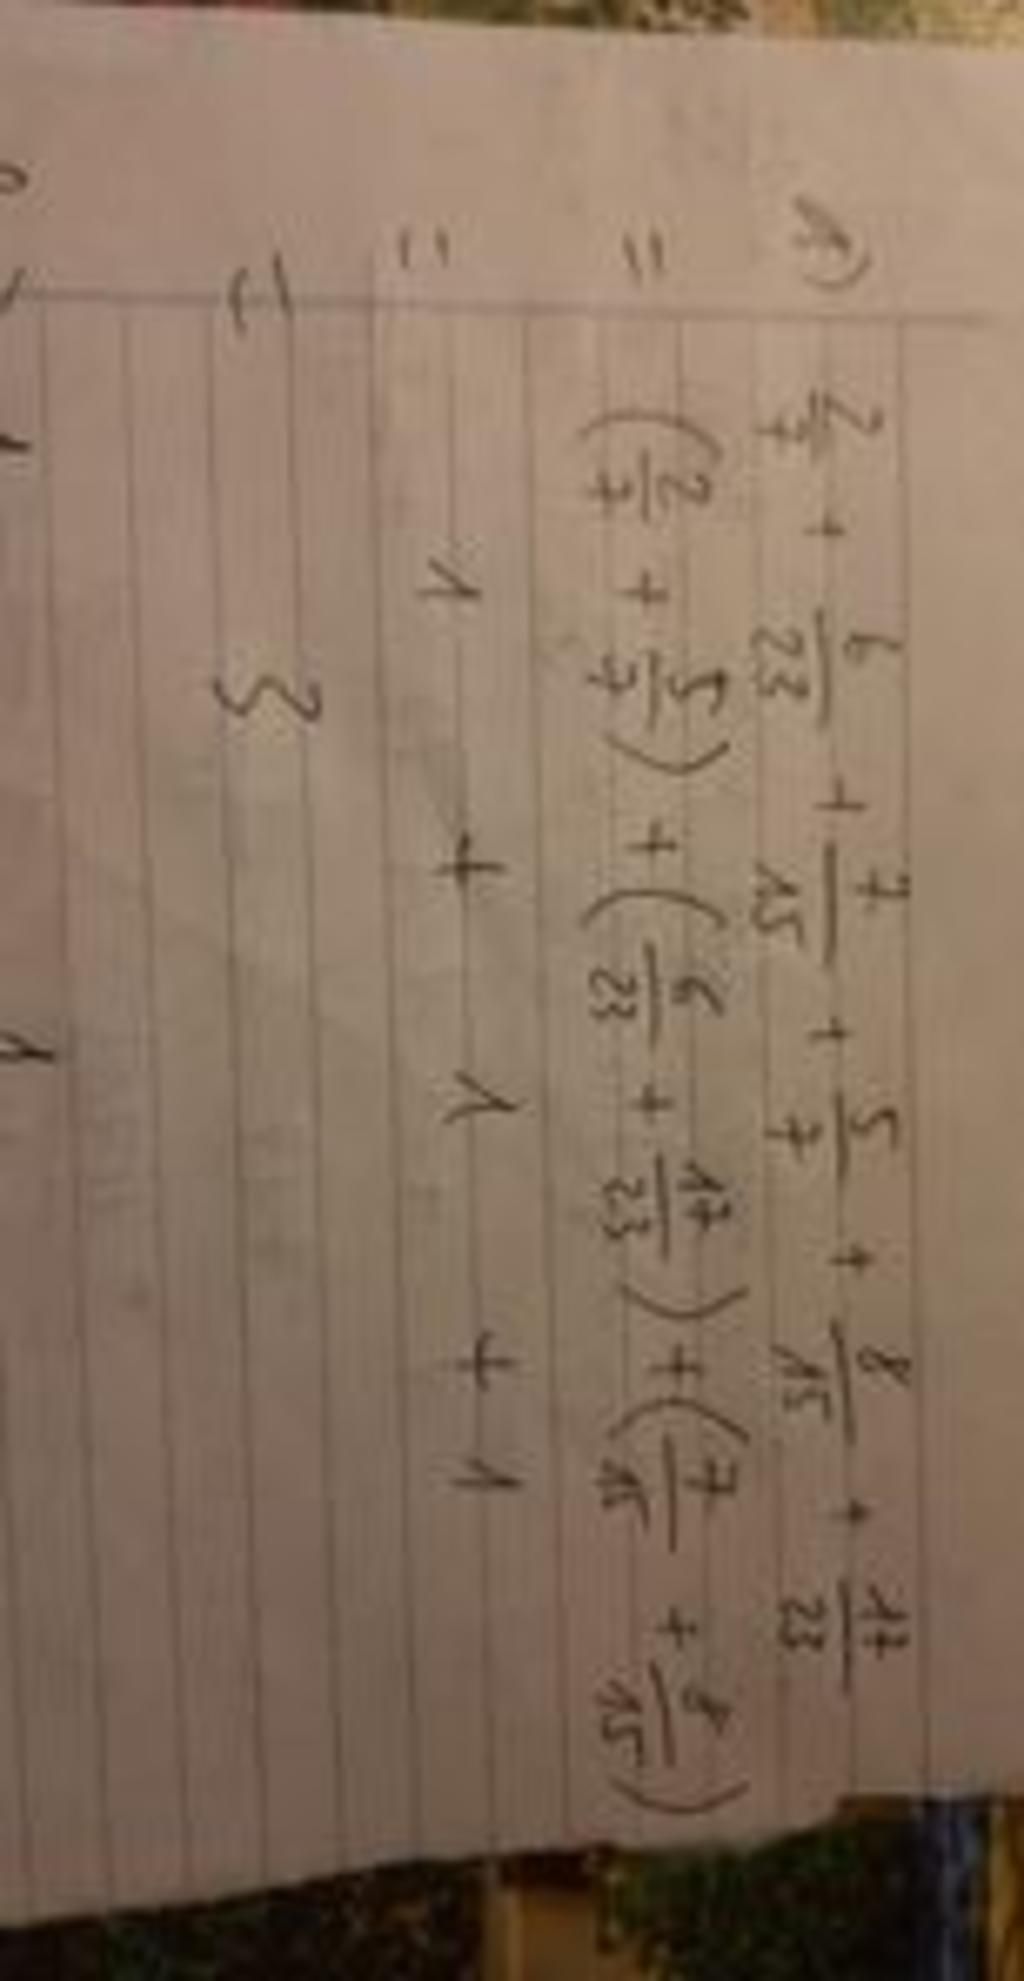 1) 2/7 + 6/23 + 7/15 + 5/7 + 8/15 + 17/23
= (2/7 + 5/7) + (6/23 + 17/23) + (7/15 + 8/15)
= 1 + 1 + 1
= 3